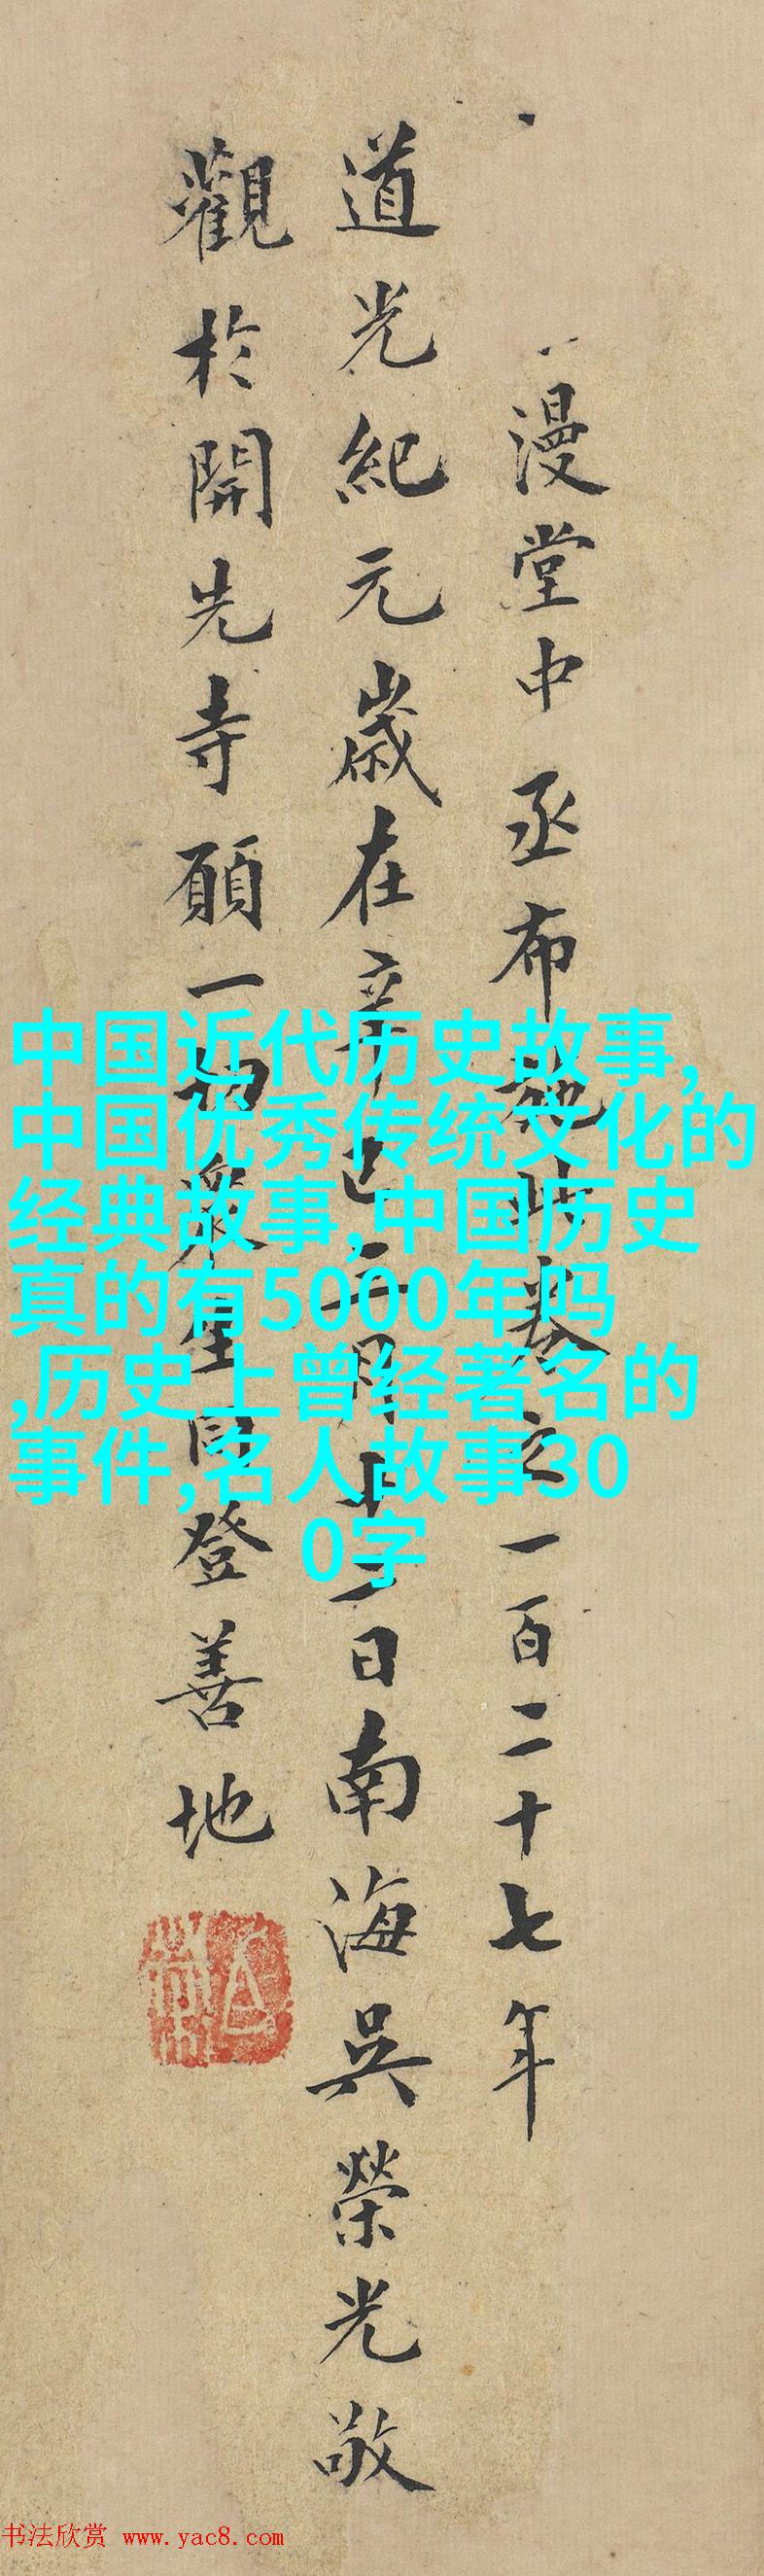 漫堂中丞布施此卷之一百二十七年
道光紀元歲在辛巳三月十一日南海吳榮光敬
觀於開先寺願一切眾生同登善地
中国近代历史故事,
中国优秀传统文化的
经典故事,中国历史
真的有5000年吗
,历史上曾经著名的
事件,名人故事30
0字
书法欣赏 www.yac8.com